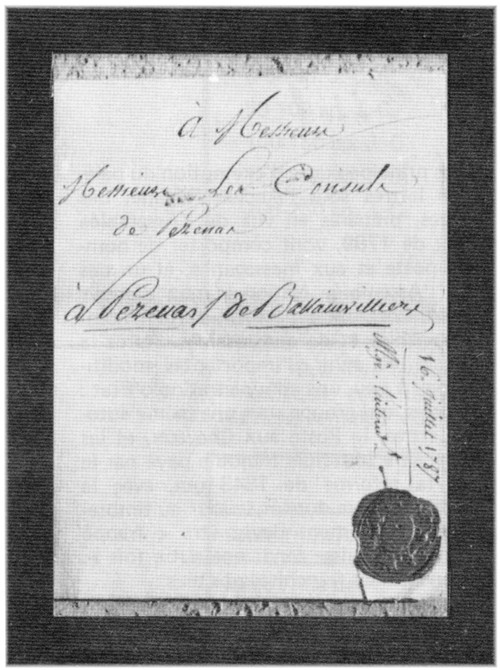 à Messieurs
Messieurs Les Consuls
de Pezenas
à Pezenas / de Ballainvilliers
16 juillet 1787
Mgr. l'intendt